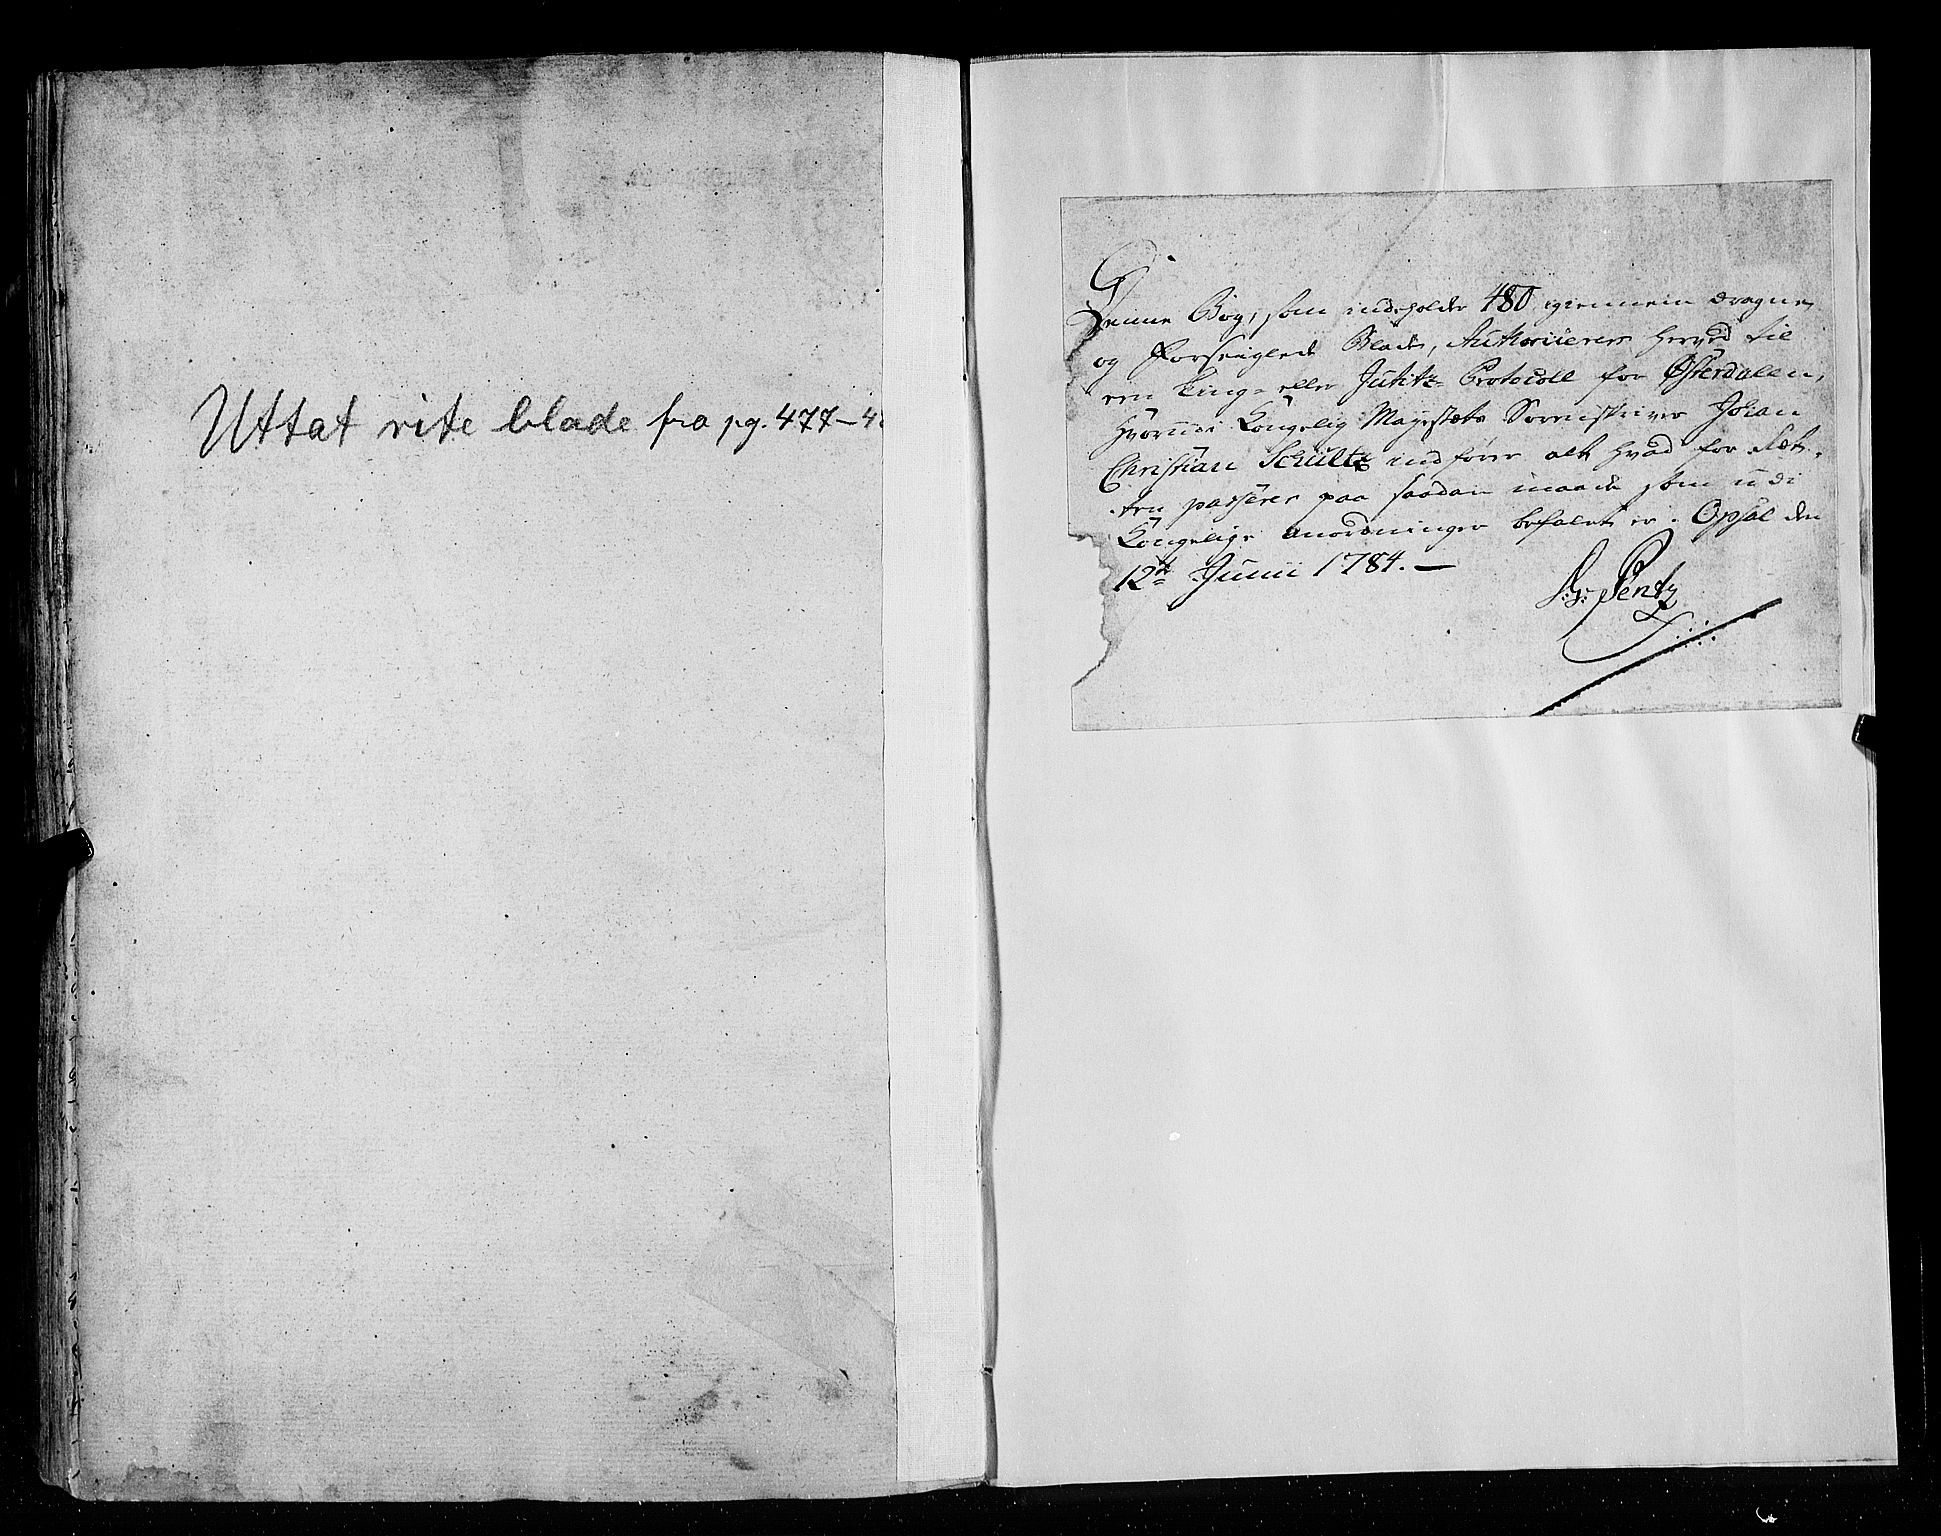 Uttat rite blade fra pg. 477–4
Denne Bog, som indeholder 480 igiennem dragne
og Forseiglede Blade, Authoriseres herved til
een Ting- eller Justitz-Protocoll for Østerdalen,
hvorudi Kongelig Mayestæts Sorenskriver Johan
Christian Schultz indfører alt hvad for Ret-
ten passerer paa saadan maade som udi
Kongelige anordninger befalet er. Opsal den
12te Junii 1784. —
Pentz